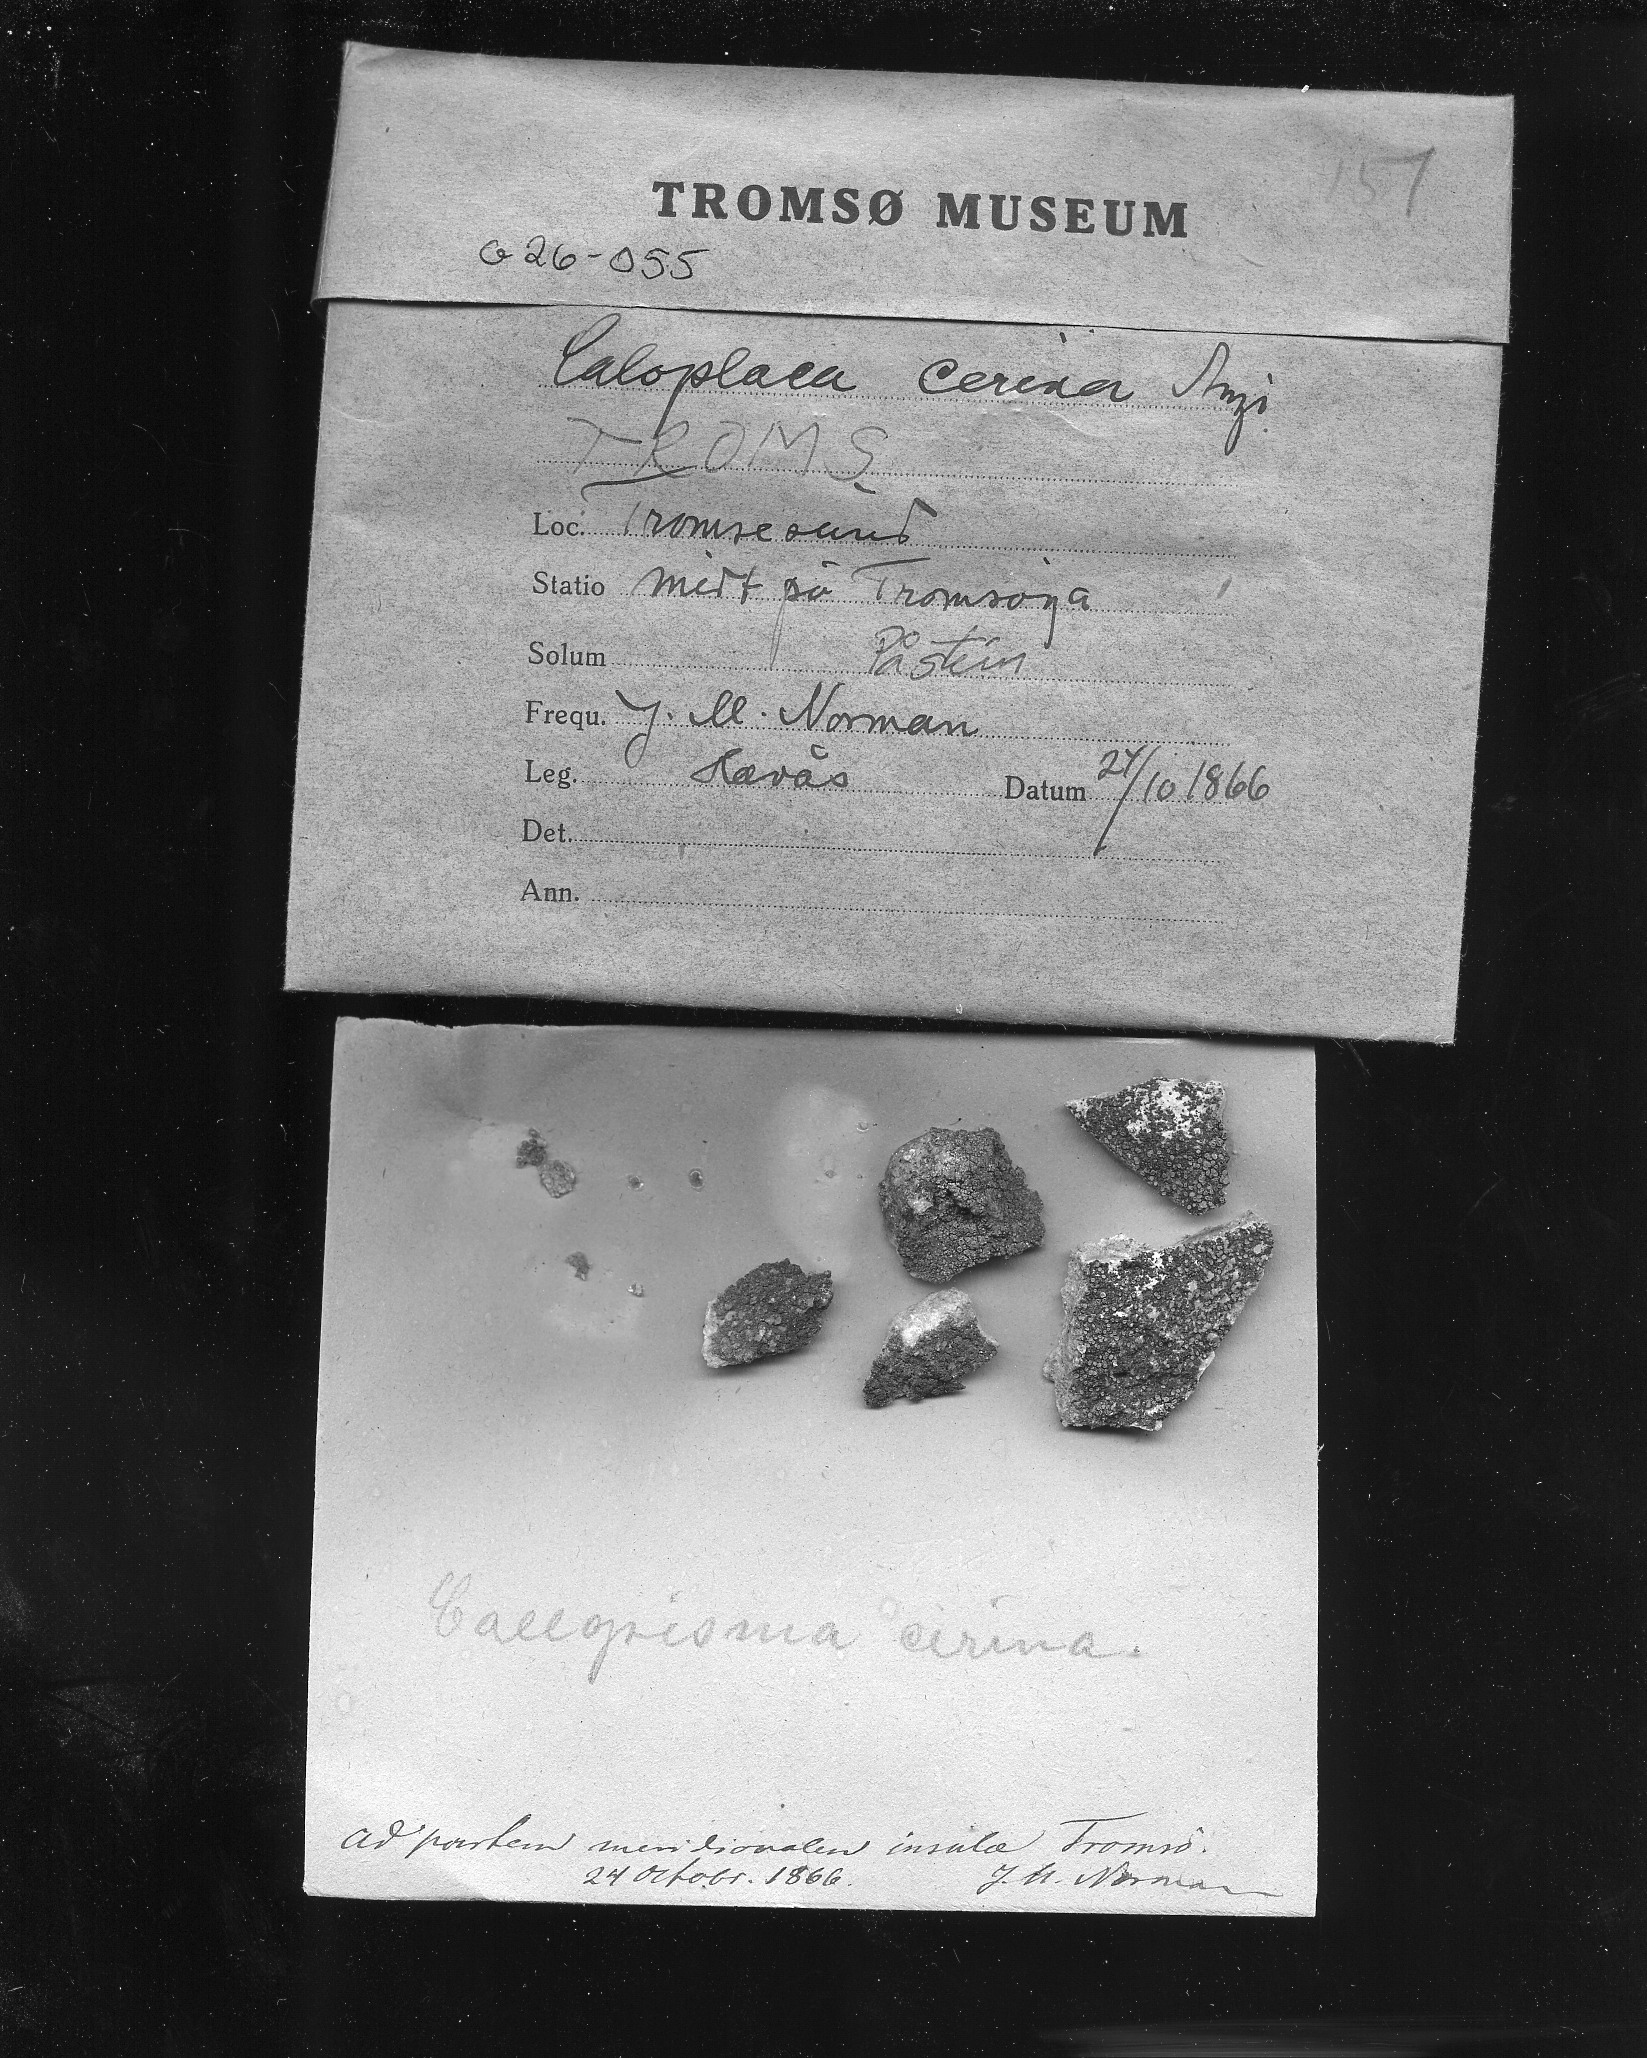 157
TROMSØ MUSEUM
G26-055
Caloplaca cerina Anzi
TROMS
Loc. Tromsesund
Statio midt på Tromsøya
Solum På stein
Frequ. J. M. Norman
Leg. Havås Datum 24/10 1866
Det.
Ann.
Callopisma cerina.
Ad partem meridionalem insulæ Tromsö.
24 Octobr. 1866. J. M. Norman